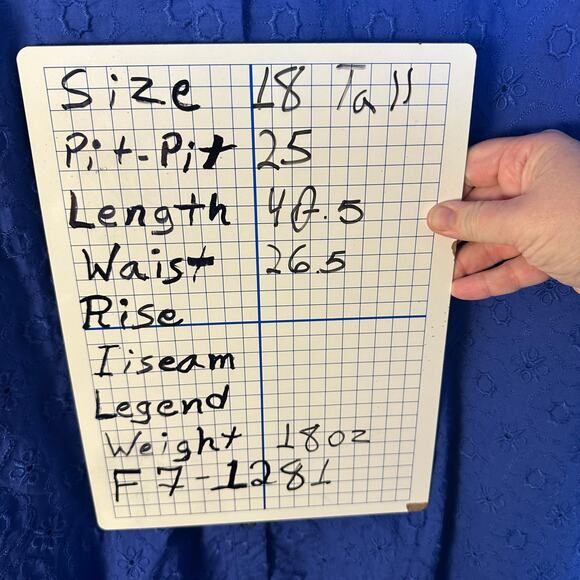 Size 18 Tall
Pit-Pit 25
Length 40.5
Waist 26.5
Rise
Iiseam
Legend
Weight 18oz
F7-1281